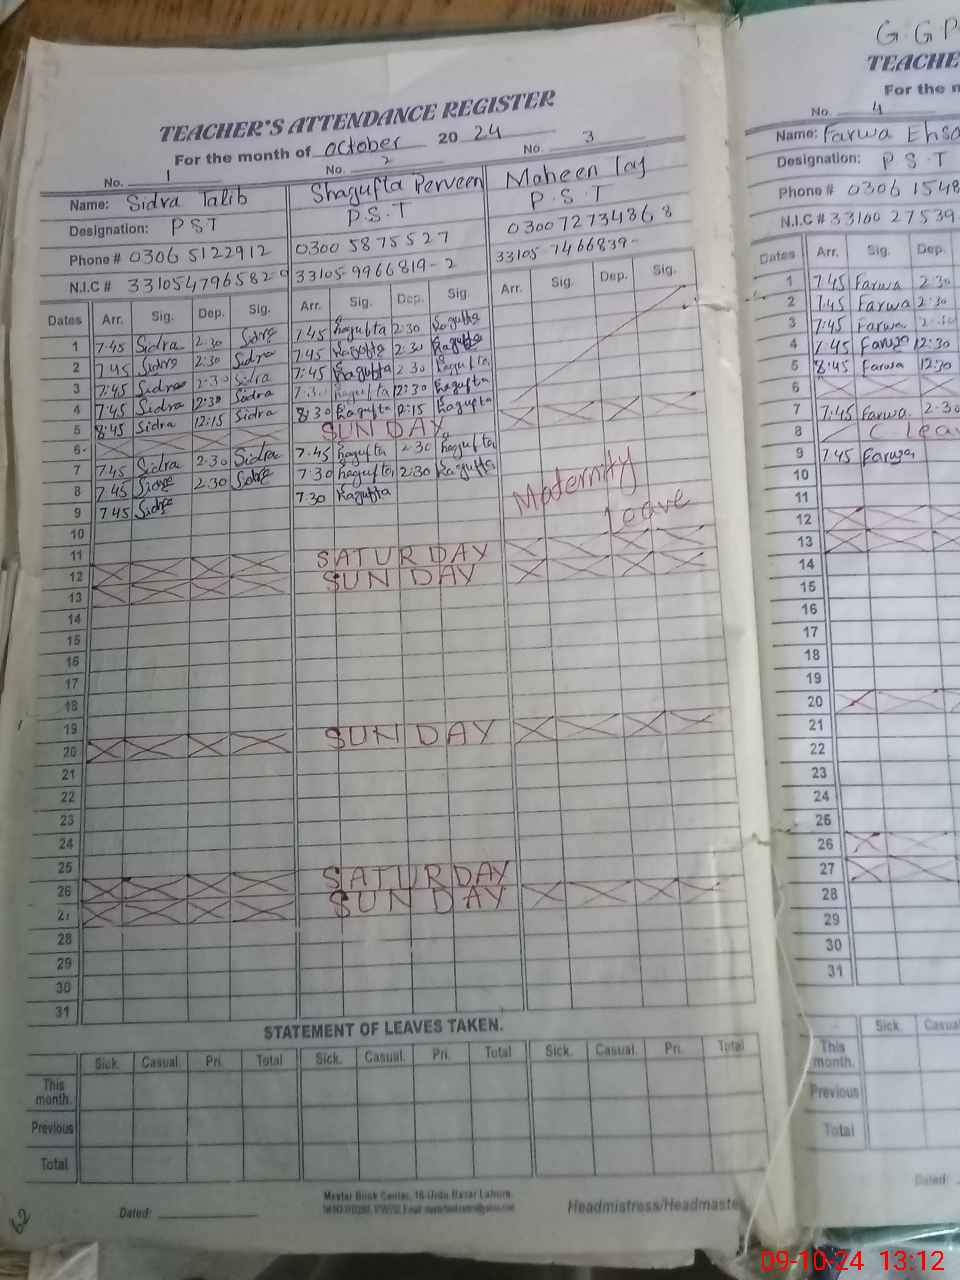 TEACHER'S ATTENDANCE REGISTER
For the month of October 2024
No. 1 No. 2 No. 3
Name: Sidra Talib Shagufta Perveen Maheen Taj
Designation: PST P.S.T P.S.T
Phone # 0306 5122912 0300 5875527 0300 7273486 8
N.I.C # 3310547965829 33105-9966819-2 33105-7466839-
Dates Arr. Sig. Dep. Sig. Arr. Sig. Dep. Sig. Arr. Sig. Dep. Sig.
1 7:45 Sidra 2:30 Sidra 7:45 2:30
2 7:45 Sidra 2:30 Sidra 7:45 2:30
3 7:45 Sidra 2:30 Sidra 7:45 2:30
4 7:45 Sidra 12:30 Sidra 12:30
5 8:45 Sidra 12:15 Sidra 8:30 12:15
6 SUNDAY
7 7:45 Sidra 2:30 Sidra 7:45 2:30
8 7:45 Sidra 2:30 Sidra 7:30 2:30
9 7:45 Sidra 7:30
Maternity
Leave
10
11
12 SATURDAY
13 SUNDAY
14
15
16
17
18
19
20 SUNDAY
21
22
23
24
25
26 SATURDAY
27 SUNDAY
28
29
30
31
STATEMENT OF LEAVES TAKEN.
Sick. Casual. Pri. Total Sick. Casual. Pri. Total Sick. Casual. Pri. Total
This month.
Previous
Total
Master Book Center, 16-Urdu Bazar Lahore.
Dated: Headmistress/Headmaste
62
G.G.P
TEACHE
For the m
No. 4
Name: Farwa Ehsa
Designation: P.S.T
Phone # 0306 1548
N.I.C # 33100 27539
Dates Arr. Sig. Dep.
1 7:45 Farwa 2:30
2 7:45 Farwa 2:30
3 7:45 Farwa 2:30
4 7:45 Farwa 12:30
5 8:45 Farwa 12:30
6
7 7:45 Farwa 2:30
8 C Lea
9 7:45 Farwa
10
11
12
13
14
15
16
17
18
19
20
21
22
23
24
25
26
27
28
29
30
31
Sick. Casua
This month.
Previous
Total
Dated:
09-10-24 13:12